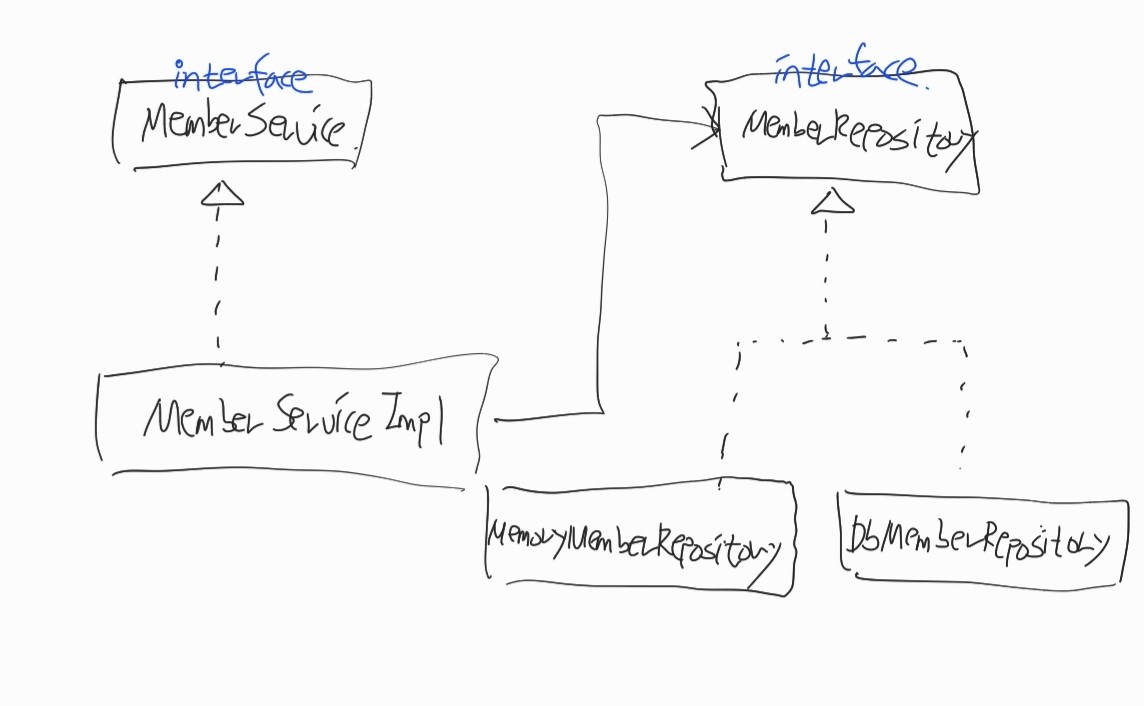 interface
MemberService.
interface.
MemberRepository
MemberServiceImpl
MemoryMemberRepository
DbMemberRepository